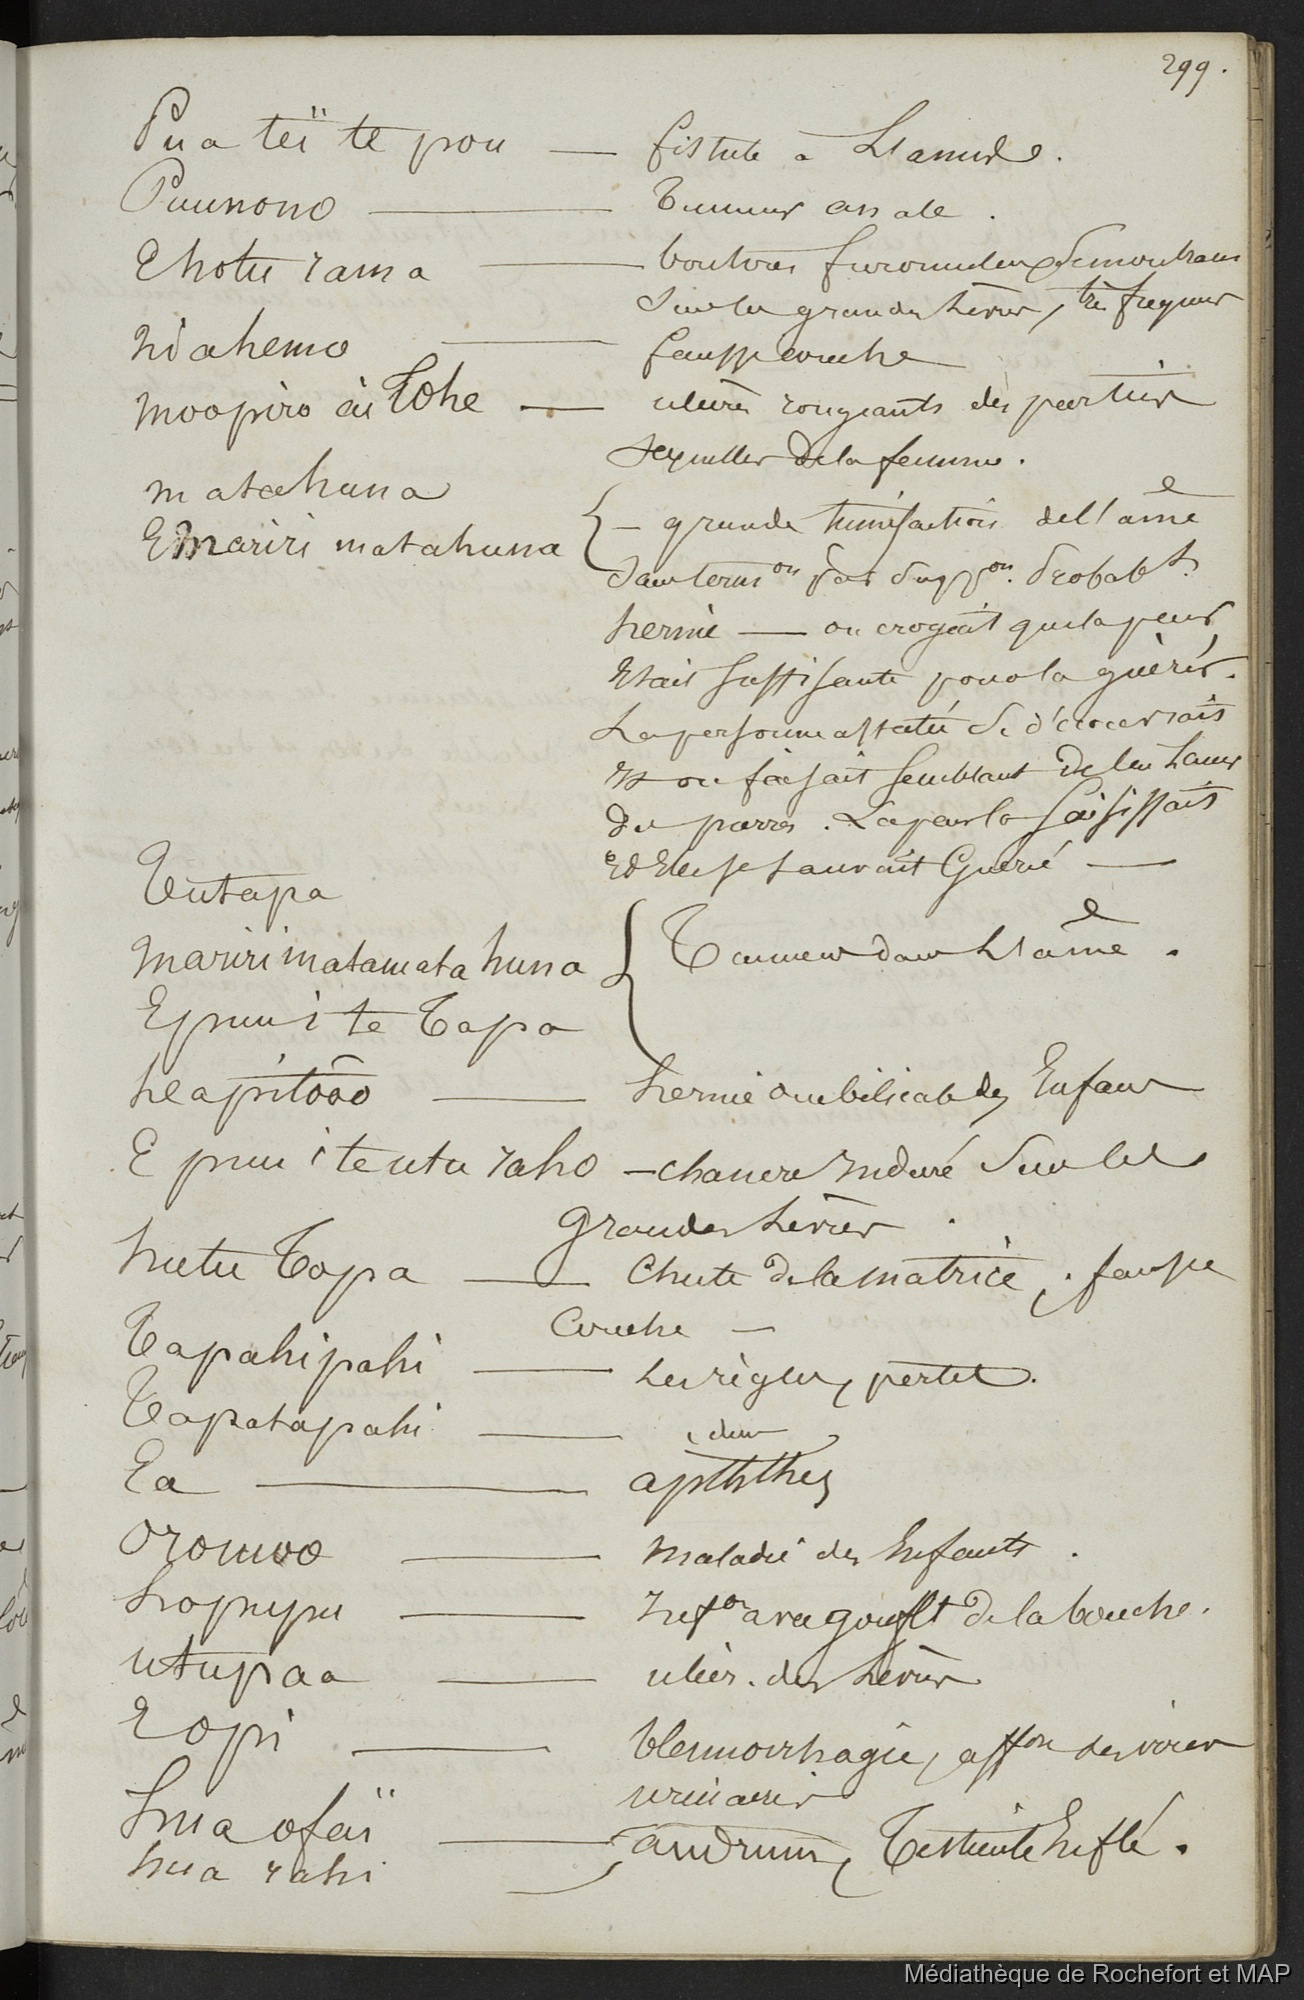 299.
Pua teï te pou — fistule à L'anus.
Puunono — Tumeur anale.
Ehotu rama — boutons furonculeux se montrant
Sur les grandes Lèvres, très frequens
hiahemo — fausse couche
moopiro ai Tohe — ulcères rongeants des parties
sexuelles de la femme.
matahuna
E mariri matahuna { — grande tuméfaction de l'aîne
Se terminon par Suppon. Probablt.
hernie — on croyait que la peur
Etait Suffisante pour la guèrir.
La personne affectée Se d'
et on faisait semblant de lui Lancer
des pierres. La peur la saisissait
Et Elle se sauvait Guérie —
Tutapa
mariri matamatahuna { Tumeur dans L'aîne.
E puu i te Tapa
heapitôoo — hernie ombilicale des Enfans
E puu i te utu raho — chancre Induré Sur les
Grandes Lèvres.
hutu Topa — Chute de la matrice, fausse
Couche —
Tapahipahi — Les règles, pertes.
Tapatapahi — idem
Ea — aphthes
oromoo — maladie des Enfants.
hopupu — Infon avec gonflt de la bouche.
utupaa — ulcér. des Lèvres
Eopi — blennorrhagie, affon des voies
urinaires
hua ofaï — andrum, Testicule Enflé.
hua rahi
Médiathèque de Rochefort et MAP